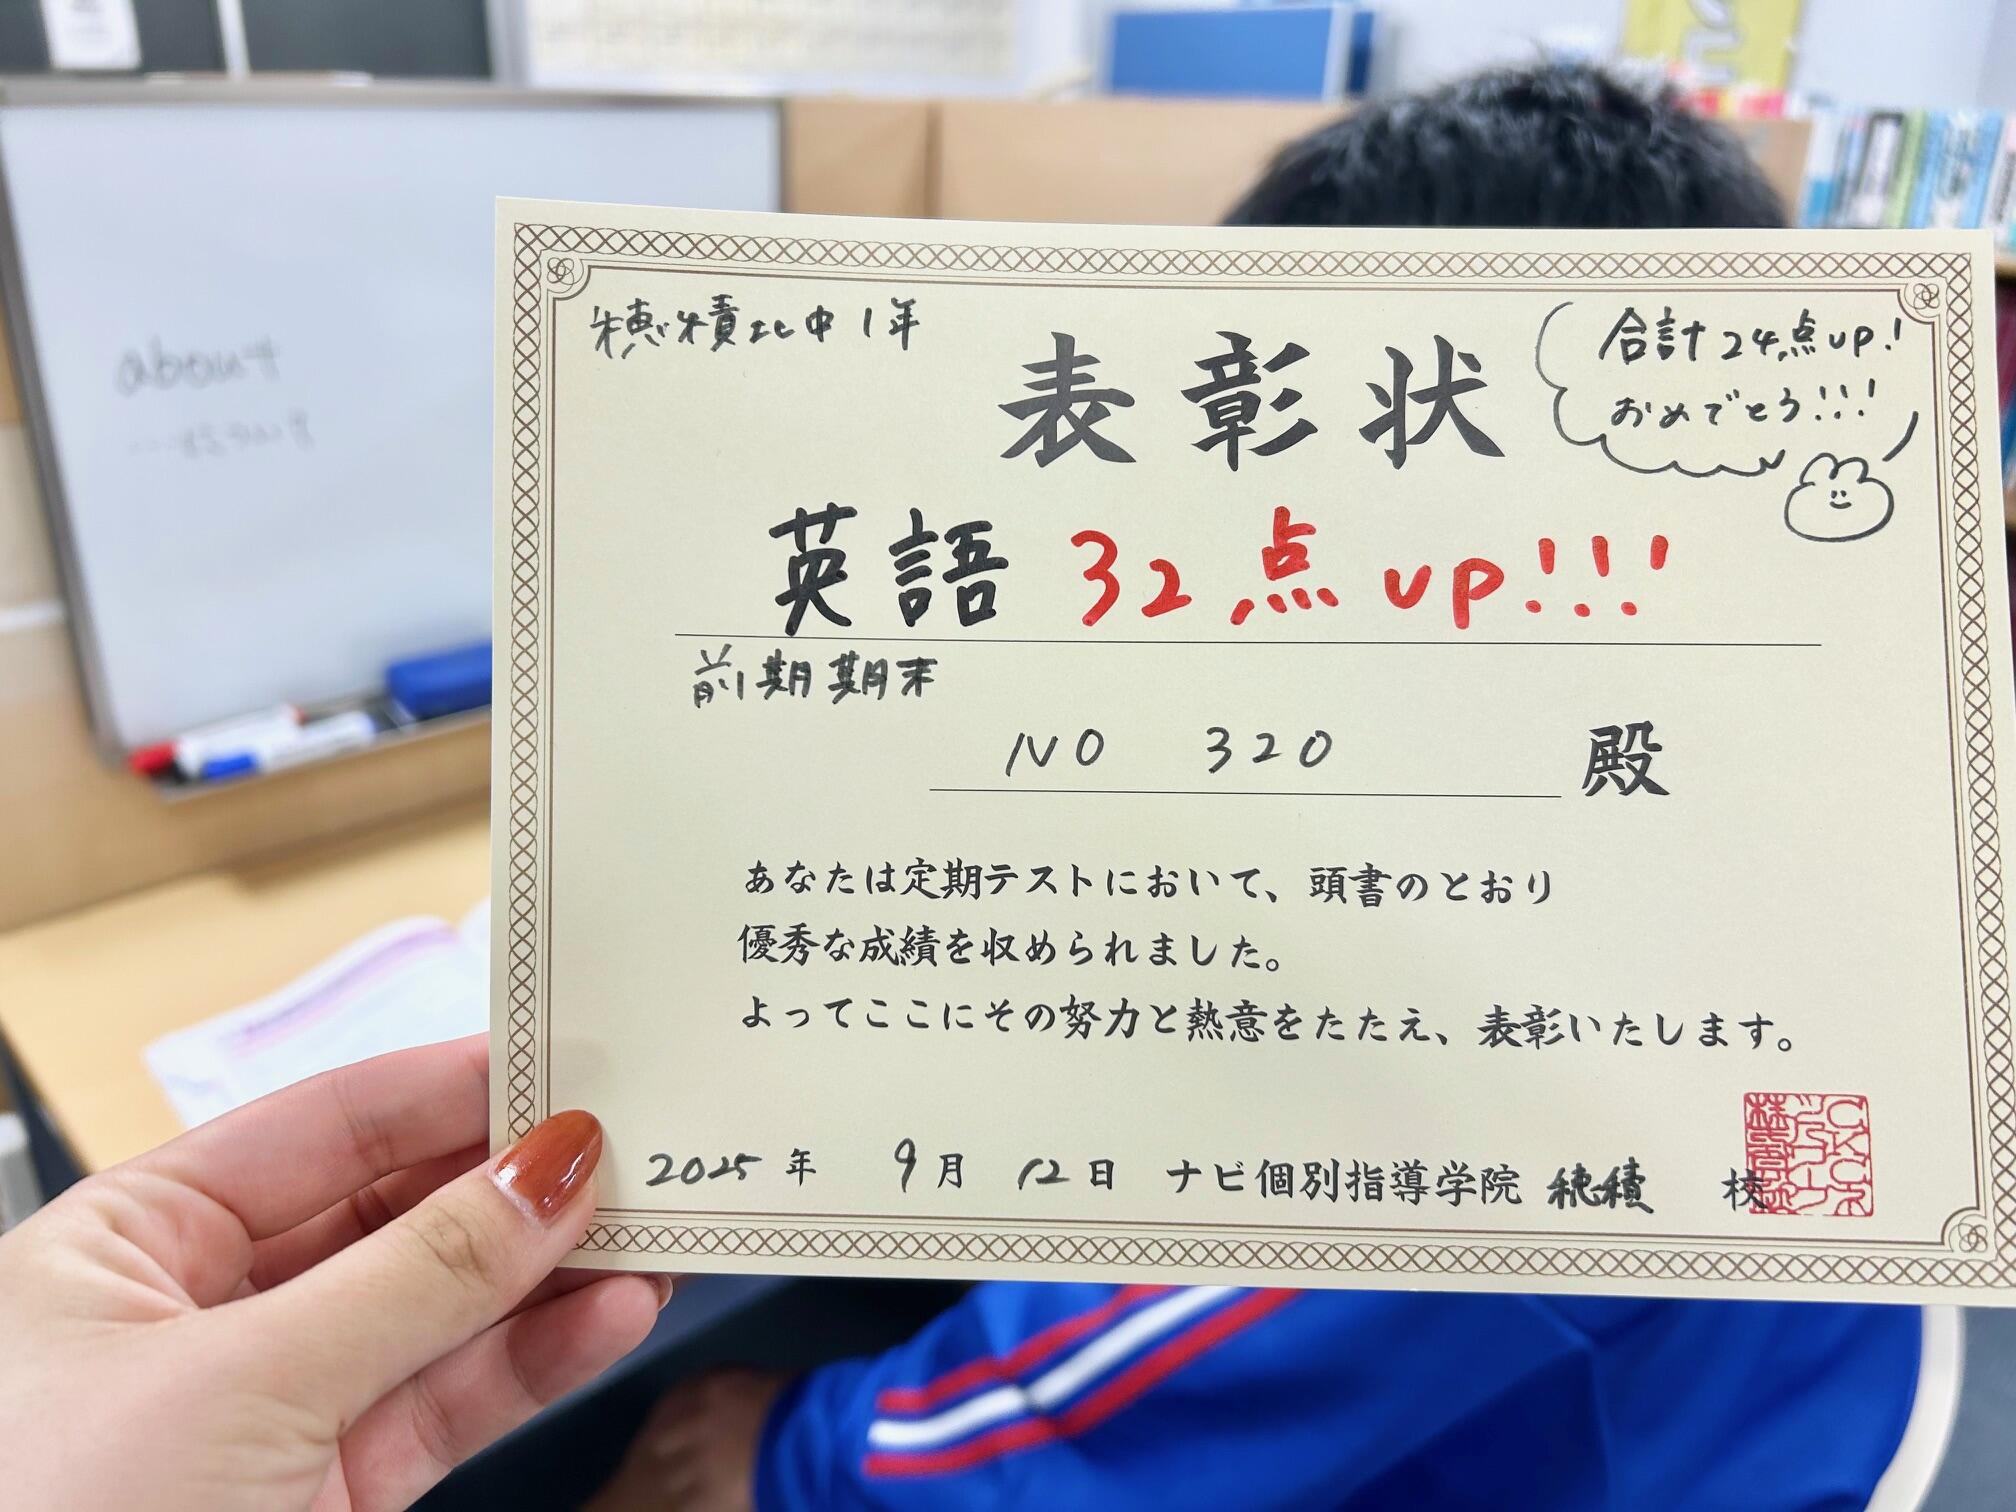 about
穂積北中1年
表彰状
合計24点up!
おめでとう!!!
英語 32点up!!!
前期期末
NO 320 殿
あなたは定期テストにおいて、頭書のとおり
優秀な成績を収められました。
よってここにその努力と熱意をたたえ、表彰いたします。
2025年 9月 12日 ナビ個別指導学院 穂積 校